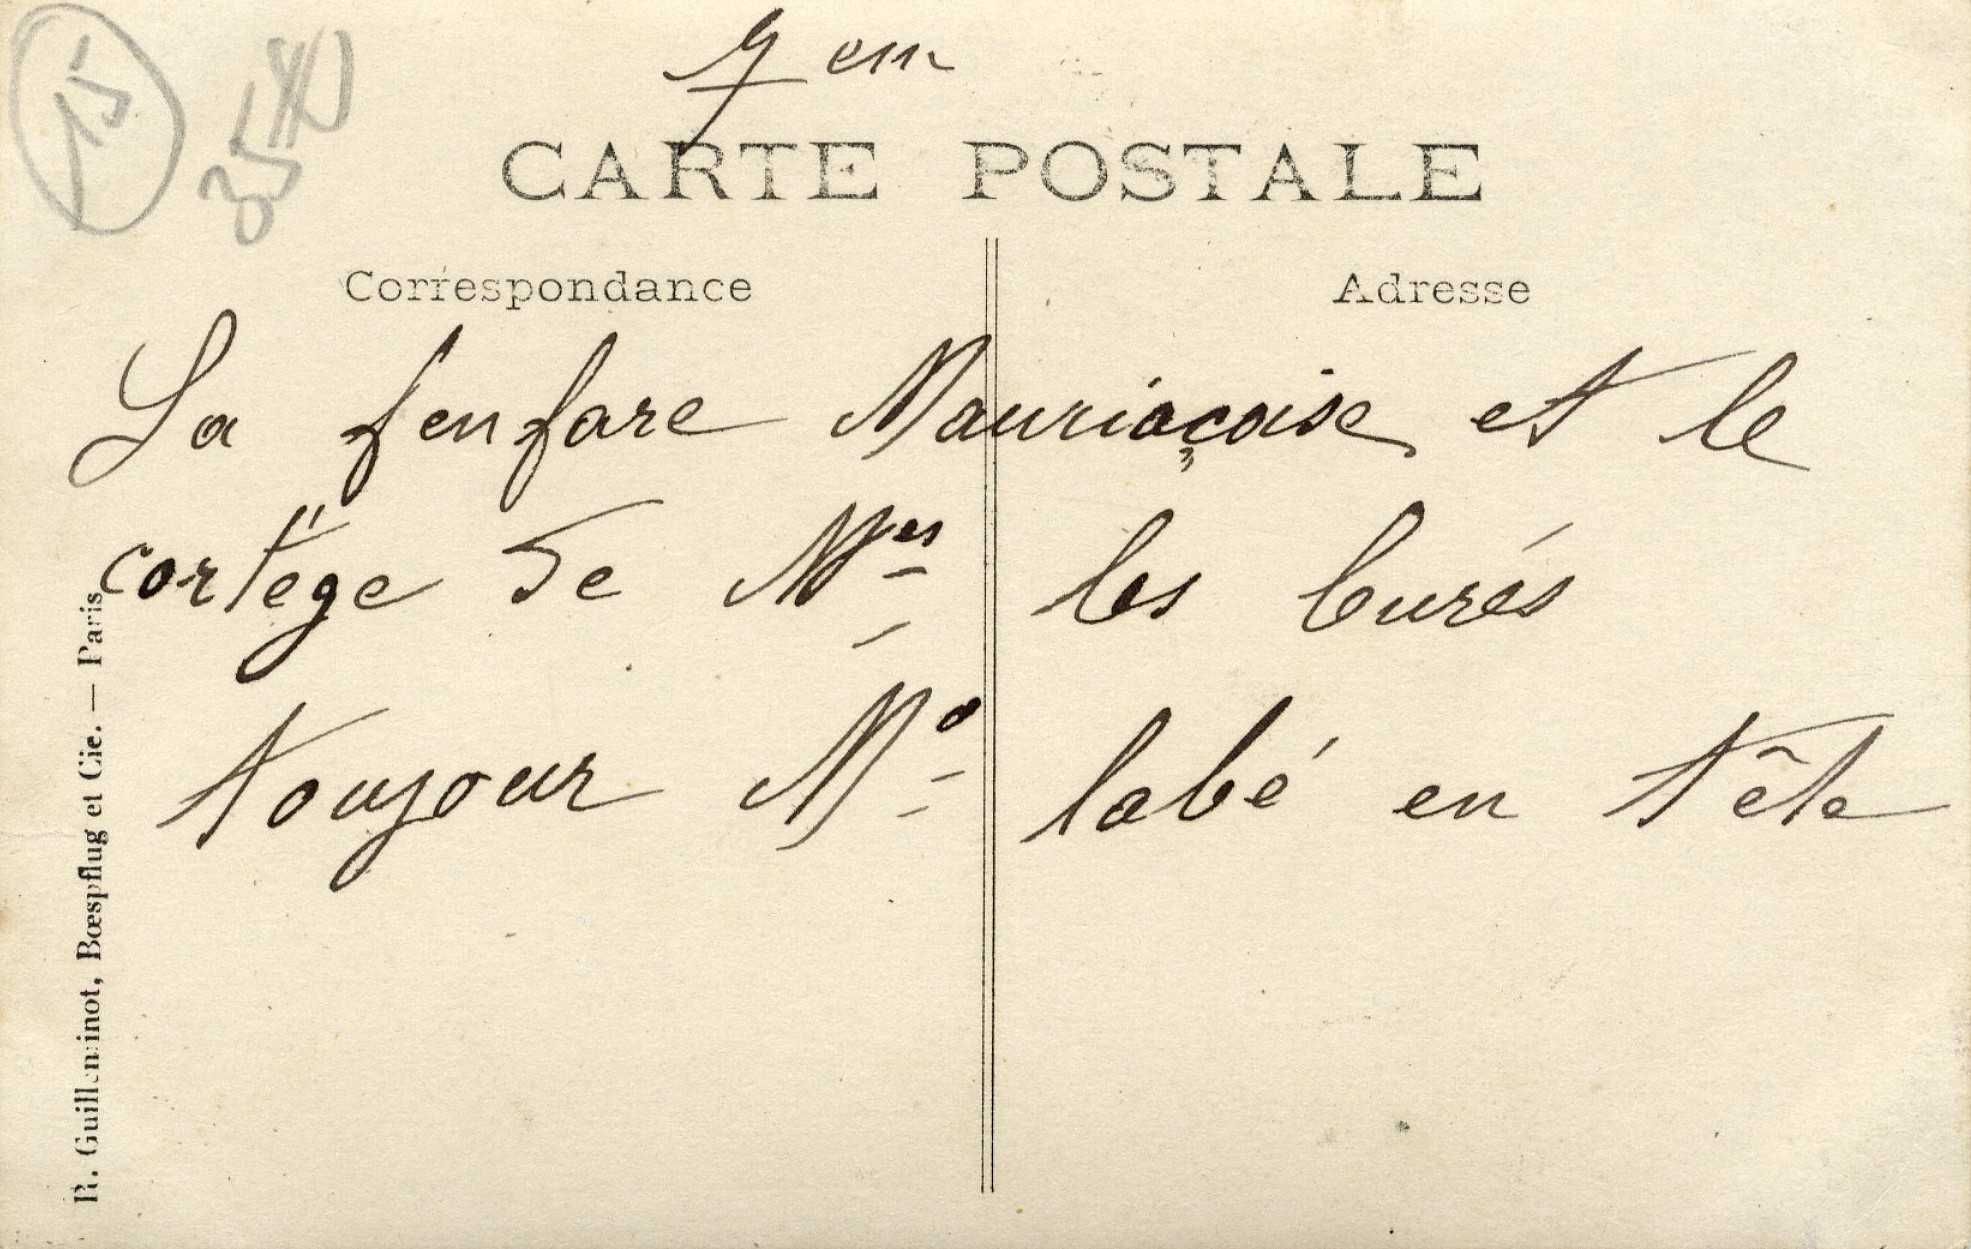 15
35
7 em
CARTE POSTALE
Correspondance
Adresse
La fenfare Mauriaçaise et le
cortège de Mes les Curés
toujour Mo labé en tête
R. Guilleminot, Bœspflug et Cie. — Paris